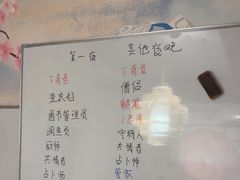 第一夜
下毒者
洗衣妇
图书管理员
调查员
厨师
共情者
占卜师
其他夜晚
下毒者
僧侣
小恶魔
守鸦人
共情者
占卜师
管家